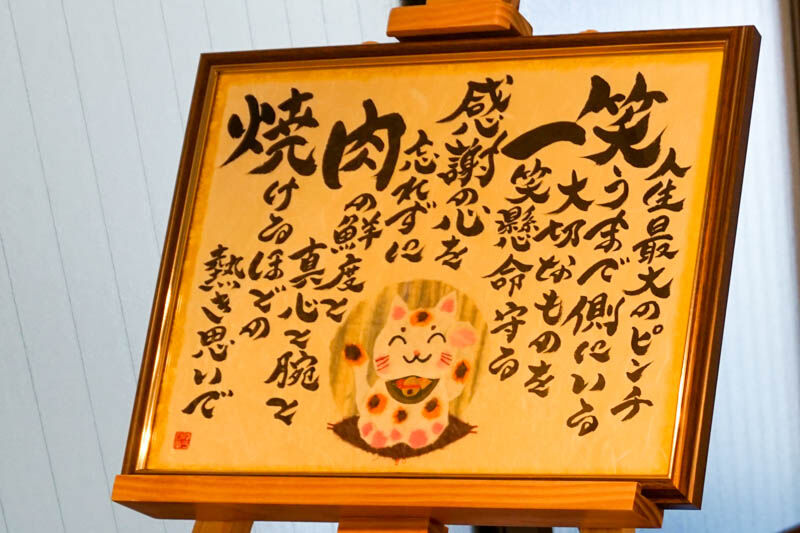 人生最大のピンチ
笑うまで側にいる
大切なものを
一笑懸命守る
感謝の心を
忘れずに
肉の鮮度と
真心と腕と
焼けるほどの
熱き思いで